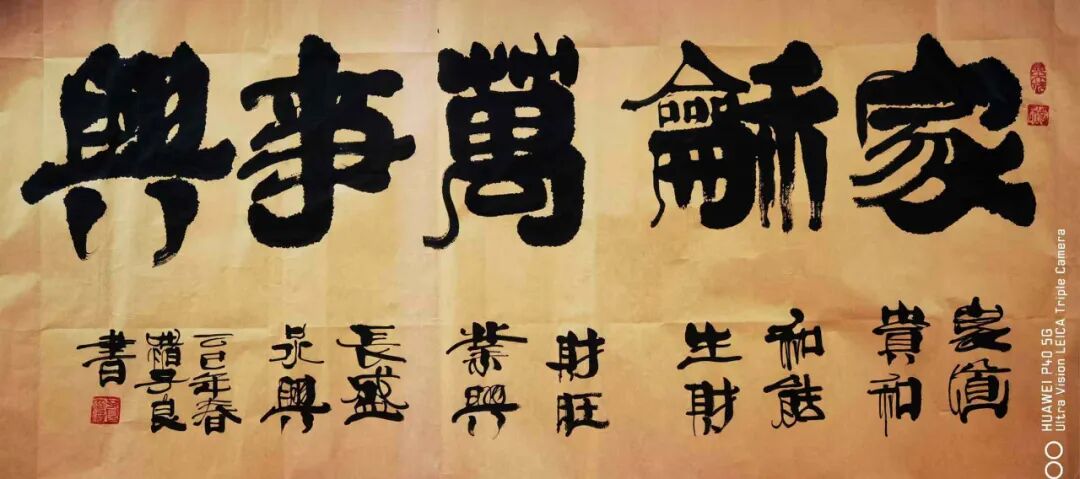 家龢萬事興
貴和
和能
生財
財旺
業興
長盛
永興
乙巳年春
子良
書
HUAWEI P40 5G
Ultra Vision LEICA Triple Camera